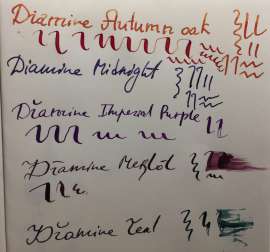 Diamine Autumn oak
Diamine Midnight
Diamine Imperial Purple
Diamine Merlot
Diamine Teal